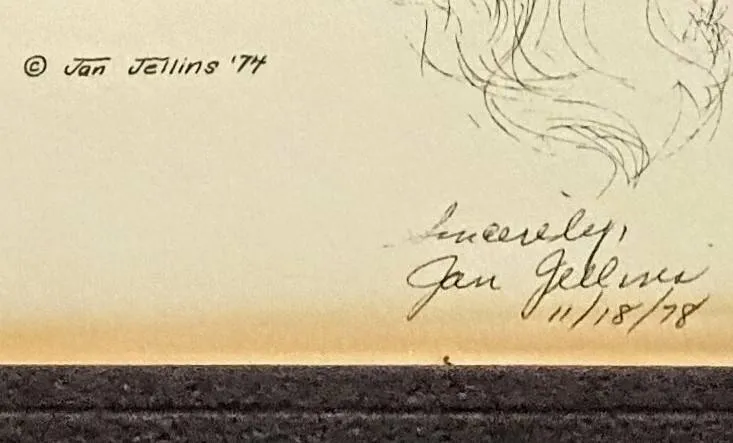 © Jan Jellins '74
Sincerely,
Jan Jellins
11/18/78